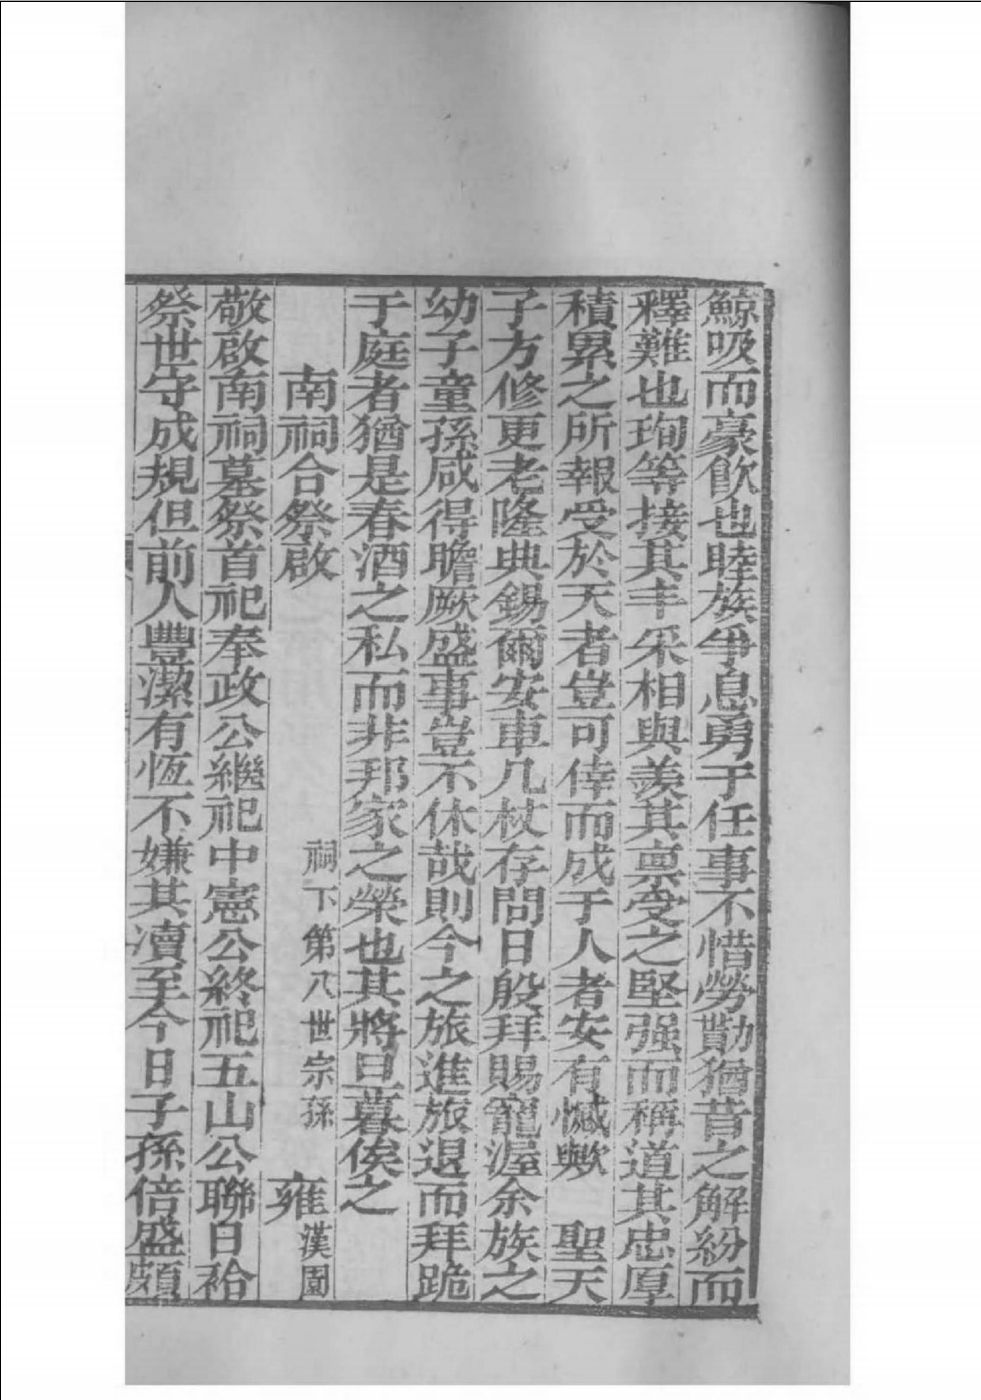 鯨吸而豪飲也睦族爭息勇于任事不惜勞勩猶昔之解紛而
釋難也珣等接其丰采相與羨其禀受之堅强而稱道其忠厚
積累之所報受於天者豈可倖而成于人者安有憾歟　聖天
子方修更老隆典錫爾安車几杖存問日般拜賜寵渥余族之
幼子童孫咸得瞻厥盛事豈不休哉則今之旅進旅退而拜跪
于庭者猶是春酒之私而非邦家之榮也其將旦暮俟之
南祠合祭啟
祠下第八世宗孫　雍漢園
敬啟南祠墓祭首祀奉政公繼祀中憲公終祀五山公聯日祫
祭世守成規但前人豐潔有恆不嫌其瀆至今日子孫倍盛頗